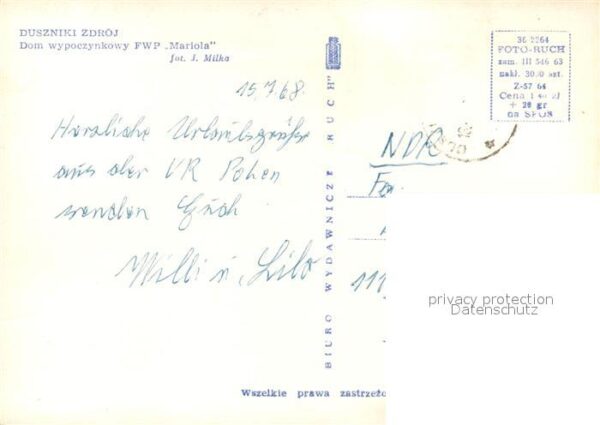 DUSZNIKI ZDRÓJ
Dom wypoczynkowy FWP „Mariola"
fot. J. Milka
15.7.68.
Herzliche Urlaubsgrüße
aus der VR Polen
senden Euch
Willi u. Lilo
BIURO WYDAWNICZE „RUCH"
Wszelkie prawa zastrzeżo
36-2264
FOTO-RUCH
zam. III 546 63
nakl. 30.0 szt.
Z-57 64
Cena 1 40 zł
+ 20 gr
na SFOS
privacy protection
Datenschutz